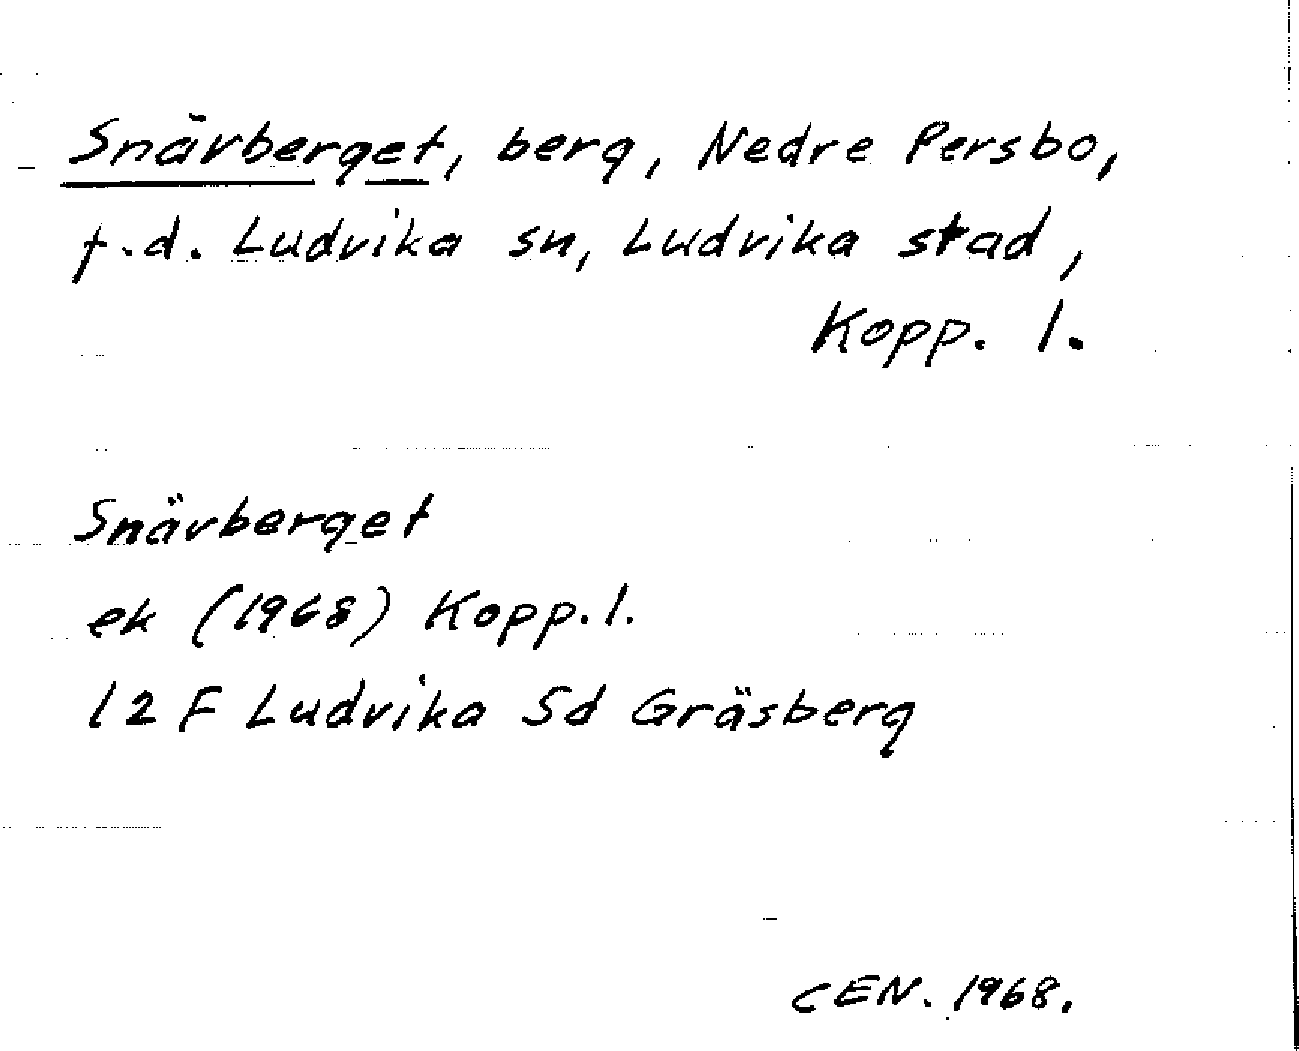 Snärberget, berg, Nedre Persbo,
f.d. Ludvika sn, Ludvika stad,
Kopp. l.
Snävberget
ek (1968) Kopp. l.
12 F Ludvika Sd Gräsberg
CEN. 1968.